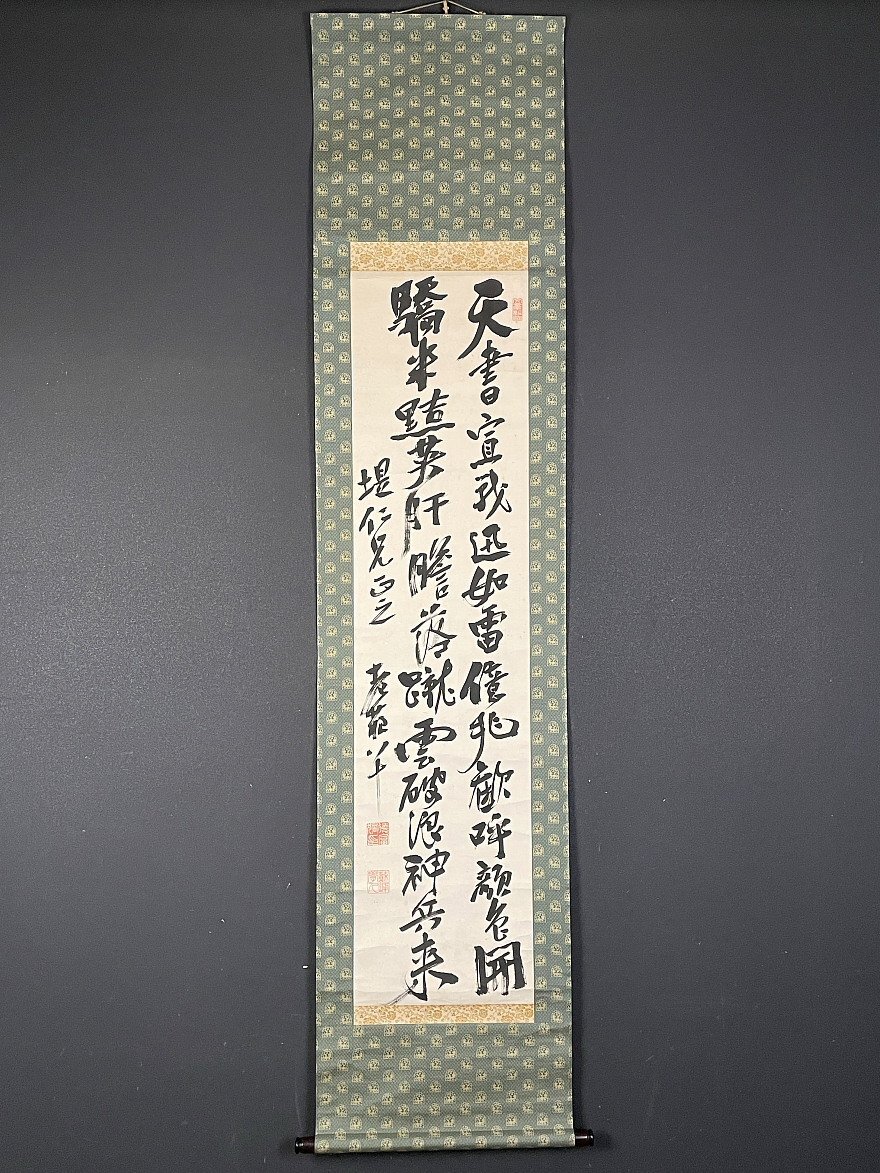 天書宣戰迅如雷億兆歡呼顏色開
驕米黠英肝膽落蹴雲破浪神兵来
堤仁兄正之
老蘇